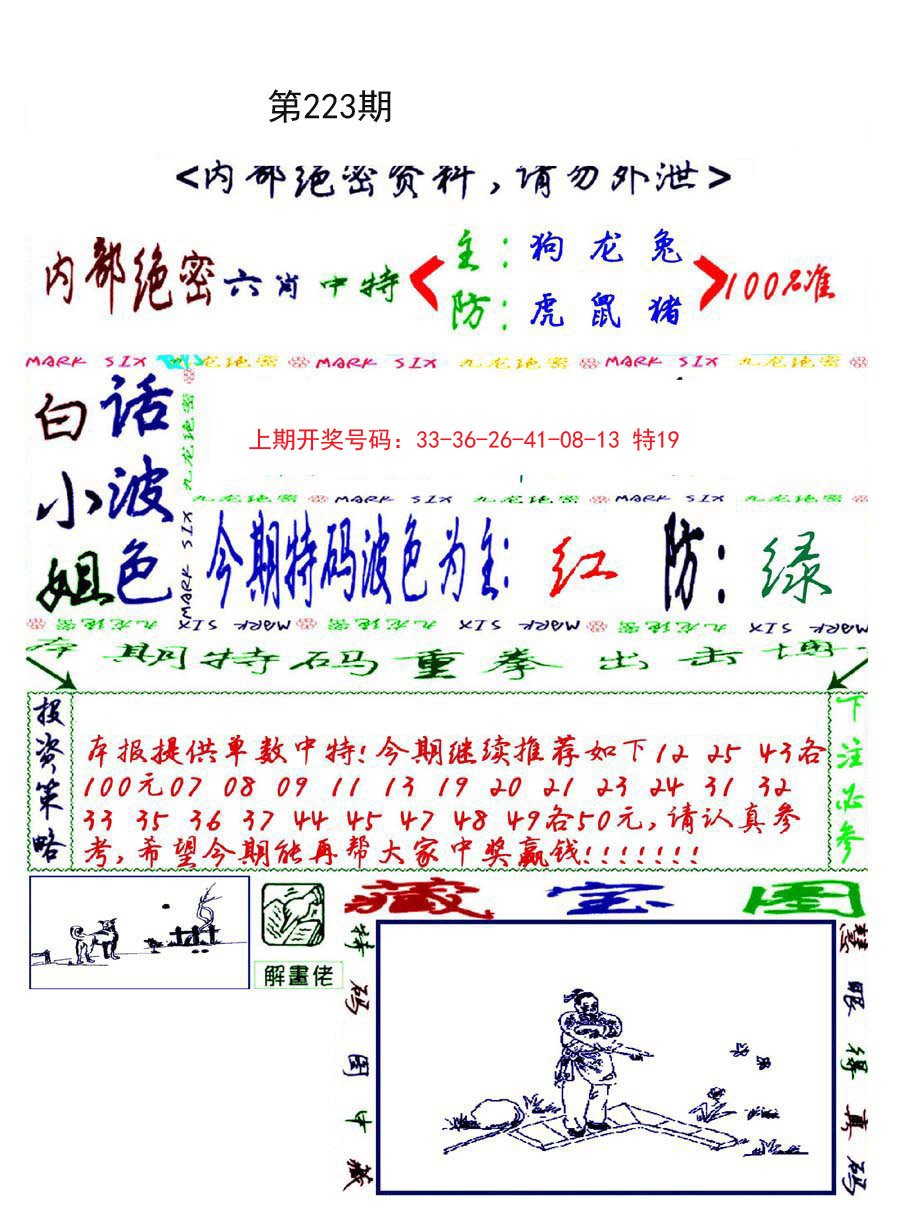 第223期
<内部绝密资料,请勿外泄>
内部绝密六肖中特
主:狗 龙 兔
防:虎 鼠 猪
100%准
MARK SIX 九龙绝密 MARK SIX 九龙绝密 MARK SIX 九龙绝密
白话
小波
姐色
九龙绝密
MARK SIX
上期开奖号码：33-36-26-41-08-13 特19
九龙绝密 MARK SIX 九龙绝密 MARK SIX 九龙绝密
今期特码波色为主: 红 防: 绿
九龙绝密 MARK SIX 九龙绝密 MARK SIX 九龙绝密 MARK SIX
本期特码重拳出击博
投资策略
本报提供单数中特!今期继续推荐如下12 25 43各
100元07 08 09 11 13 19 20 21 23 24 31 32
33 35 36 37 44 45 47 48 49各50元,请认真参
考,希望今期能再帮大家中奖赢钱!!!!!!!
下注必参
解畫佬
藏宝图
特码图中藏
慧眼得真码